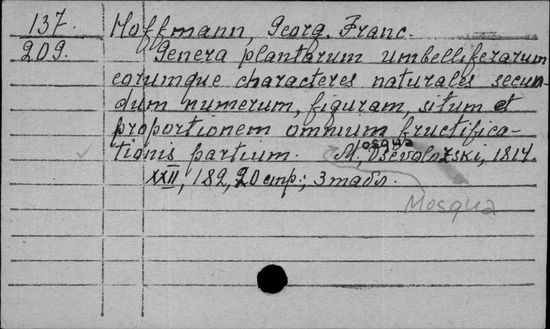 137. Hoffmann, Georg. Franc.
209. Genera plantarum umbelliferarum
earumque characteres naturales secun-
dum numerum, figuram, situm et
proportionem omnium fructifica-
tionis partium. Mosqua, Vsevolozski, 1814.
XXII, 182, 20 стр.; 3 табл.
Mosqua